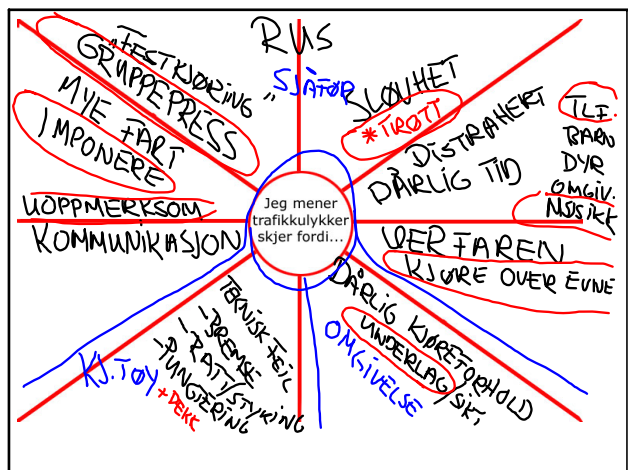 RUS
"FESTKJØRING"
GRUPPEPRESS
MYE FART
IMPONERE
UOPPMERKSOM
KOMMUNIKASJON
SJÅFØR
SLØVHET
*TRØTT
DISTRAHERT
DÅRLIG TID
TLF.
BARN
DYR
OMGIV.
MUSIKK
Jeg mener
trafikkulykker
skjer fordi...
UERFAREN
KJØRE OVER EVNE
DÅRLIG KJØREFORHOLD
UNDERLAG/SIKT
OMGIVELSE
TEKNISK FEIL
- BREMSE
- RATT/STYRING
KJ.TØY
+DEKK